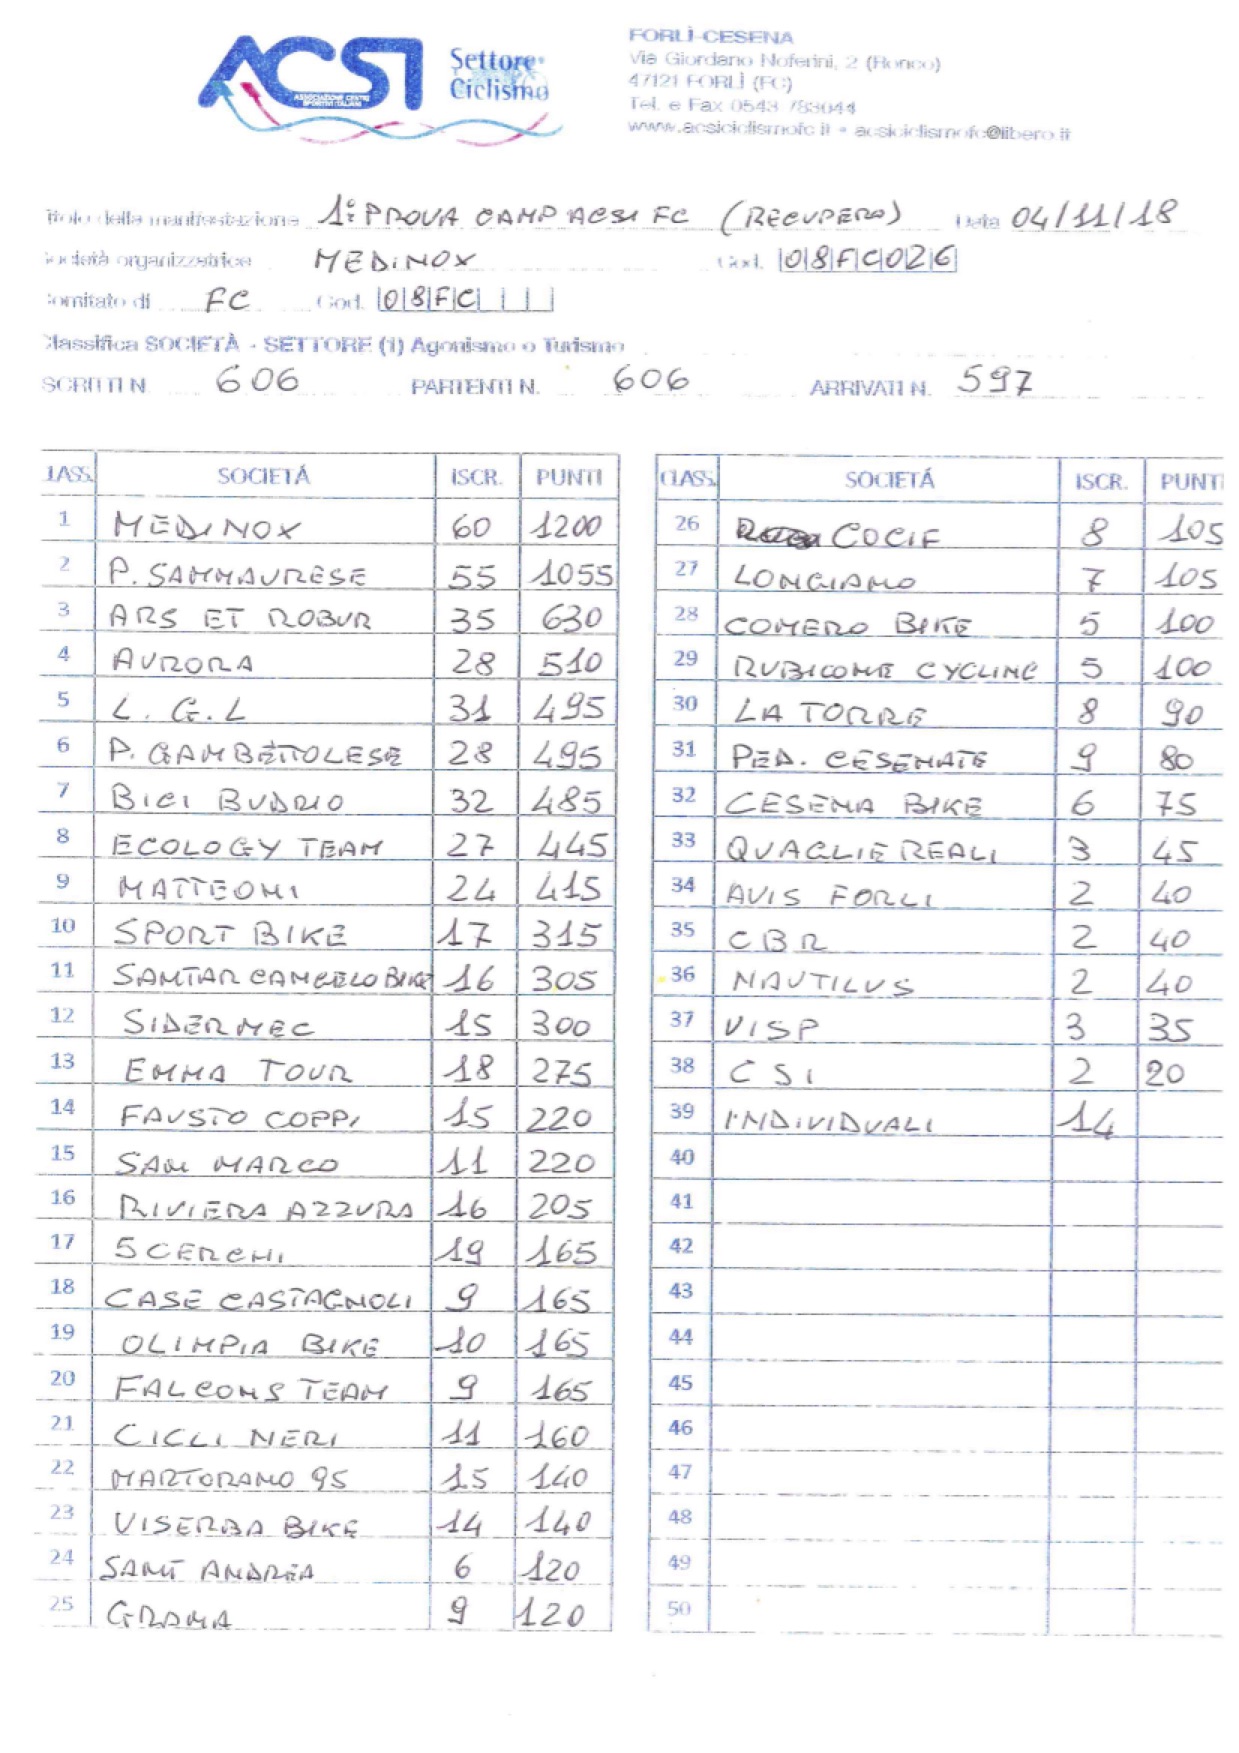 ACSI
ASSOCIAZIONE CENTRI
SPORTIVI ITALIANI
Settore
Ciclismo
FORLÌ-CESENA
Via Giordano Noferini, 2 (Ronco)
47121 FORLÌ (FC)
Tel. e Fax 0543 783044
www.acsiciclismofc.it • acsiciclismofc@libero.it
Titolo della manifestazione 1° PROVA CAMP ACSI FC (RECUPERO) Data 04/11/18
Società organizzatrice MEDINOX Cod. |0|8|F|C|0|2|6|
Comitato di FC Cod. |0|8|F|C| | | |
Classifica SOCIETÀ - SETTORE (1) Agonismo o Turismo
SCRITTI N. 606 PARTENTI N. 606 ARRIVATI N. 597
LASS. SOCIETÁ ISCR. PUNTI
1 MEDINOX 60 1200
2 P. SAMMAURESE 55 1055
3 ARS ET ROBUR 35 630
4 AURORA 28 510
5 L.G.L 31 495
6 P. GAMBETTOLESE 28 495
7 BICI BUDRIO 32 485
8 ECOLOGY TEAM 27 445
9 MATTEONI 24 415
10 SPORT BIKE 17 315
11 SANTARCANGELO BIKE 16 305
12 SIDERMEC 15 300
13 EMMA TOUR 18 275
14 FAUSTO COPPI 15 220
15 SAN MARCO 11 220
16 RIVIERA AZZURA 16 205
17 5 CERCHI 19 165
18 CASE CASTAGNOLI 9 165
19 OLIMPIA BIKE 10 165
20 FALCONS TEAM 9 165
21 CICLI NERI 11 160
22 MARTORANO 95 15 140
23 VISERBA BIKE 14 140
24 SANT ANDREA 6 120
25 GRAMA 9 120
CLASS. SOCIETÁ ISCR. PUNTI
26 COCIF 8 105
27 LONGIANO 7 105
28 COMERO BIKE 5 100
29 RUBICONE CYCLING 5 100
30 LA TORRE 8 90
31 PED. CESENATE 9 80
32 CESENA BIKE 6 75
33 QUAGLIE REALI 3 45
34 AVIS FORLI 2 40
35 CBR 2 40
36 NAUTILUS 2 40
37 VISP 3 35
38 CSI 2 20
39 INDIVIDUALI 14
40
41
42
43
44
45
46
47
48
49
50